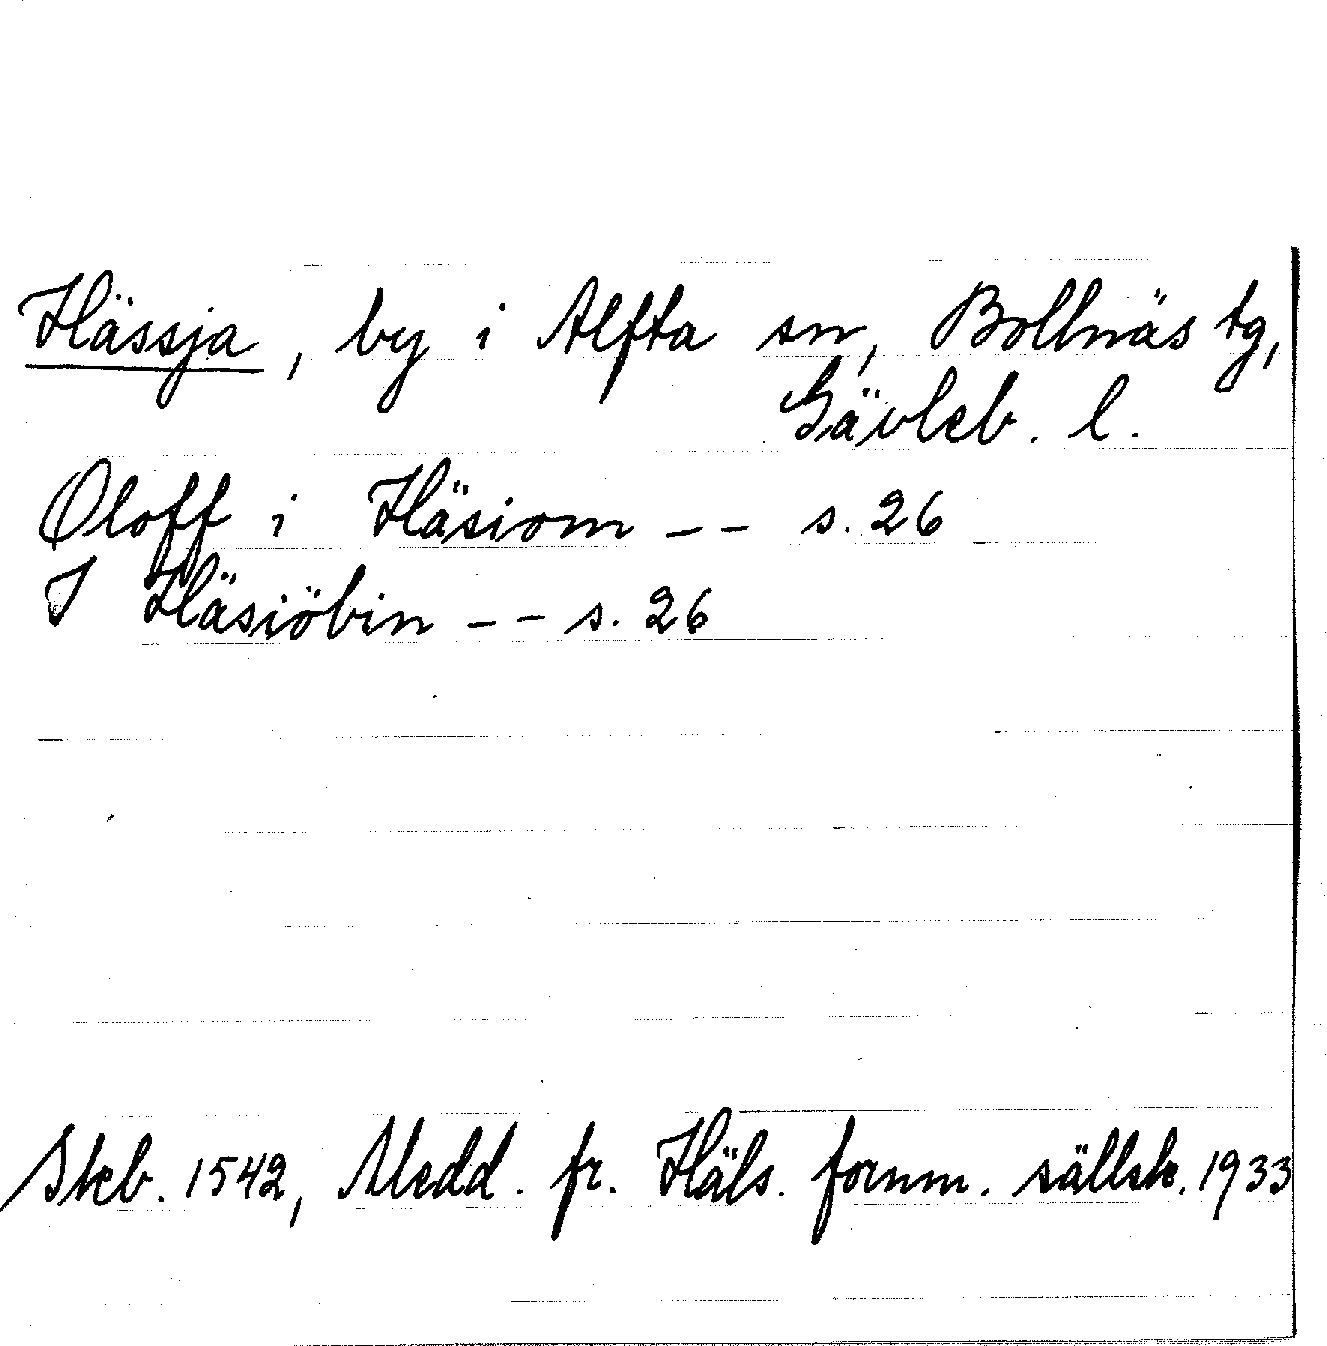 Hässja, by i Alfta sn, Bollnäs tg,
Gävleb. l.
Oloff i Häsiom -- s. 26
I Häsiöbin -- s. 26
Skb. 1542, Medd. fr. Häls. fornm. sällsk. 1933